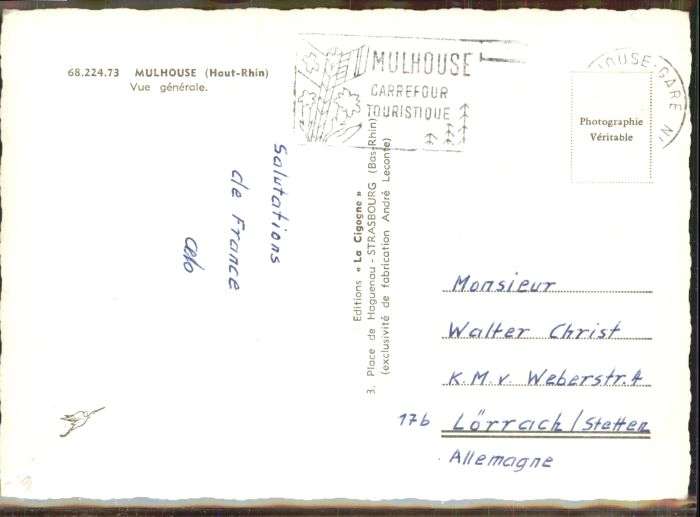 68.224.73 MULHOUSE (Haut-Rhin)
Vue générale.
MULHOUSE
CARREFOUR
TOURISTIQUE
Photographie
Véritable
Salutations
de France
Editions « La Cigogne »
3, Place de Haguenau - STRASBOURG (Bas-Rhin)
(exclusivité de fabrication André Leconte)
Monsieur
Walter Christ
K.M.v. Weberstr. 4
17b Lörrach/Stetten
Allemagne